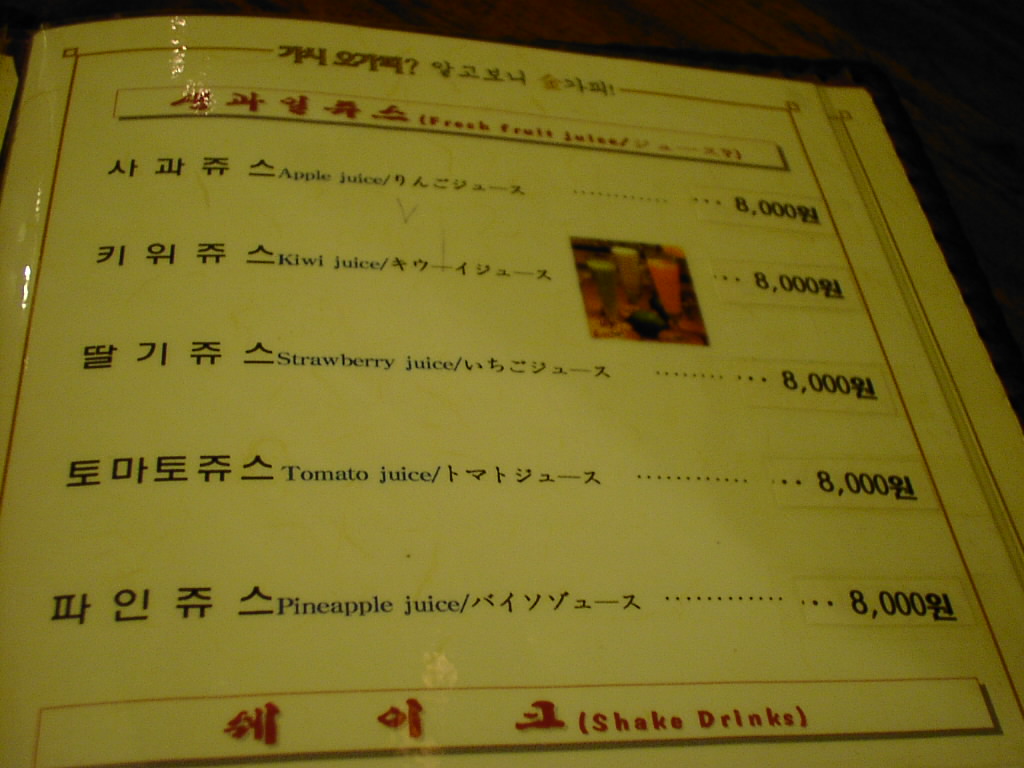 가시 오가피? 알고보니 金가피!
생과일쥬스 (Fresh fruit juice/ジュース
사과쥬스 Apple juice/りんごジュース ··············· 8,000원
키위쥬스 Kiwi juice/キウーイジュース ··· 8,000원
딸기쥬스 Strawberry juice/いちごジュース ··········· 8,000원
토마토쥬스 Tomato juice/トマトジュース ·············· 8,000원
파인쥬스 Pineapple juice/バイソゾュース ··············· 8,000원
쉐이크 (Shake Drinks)